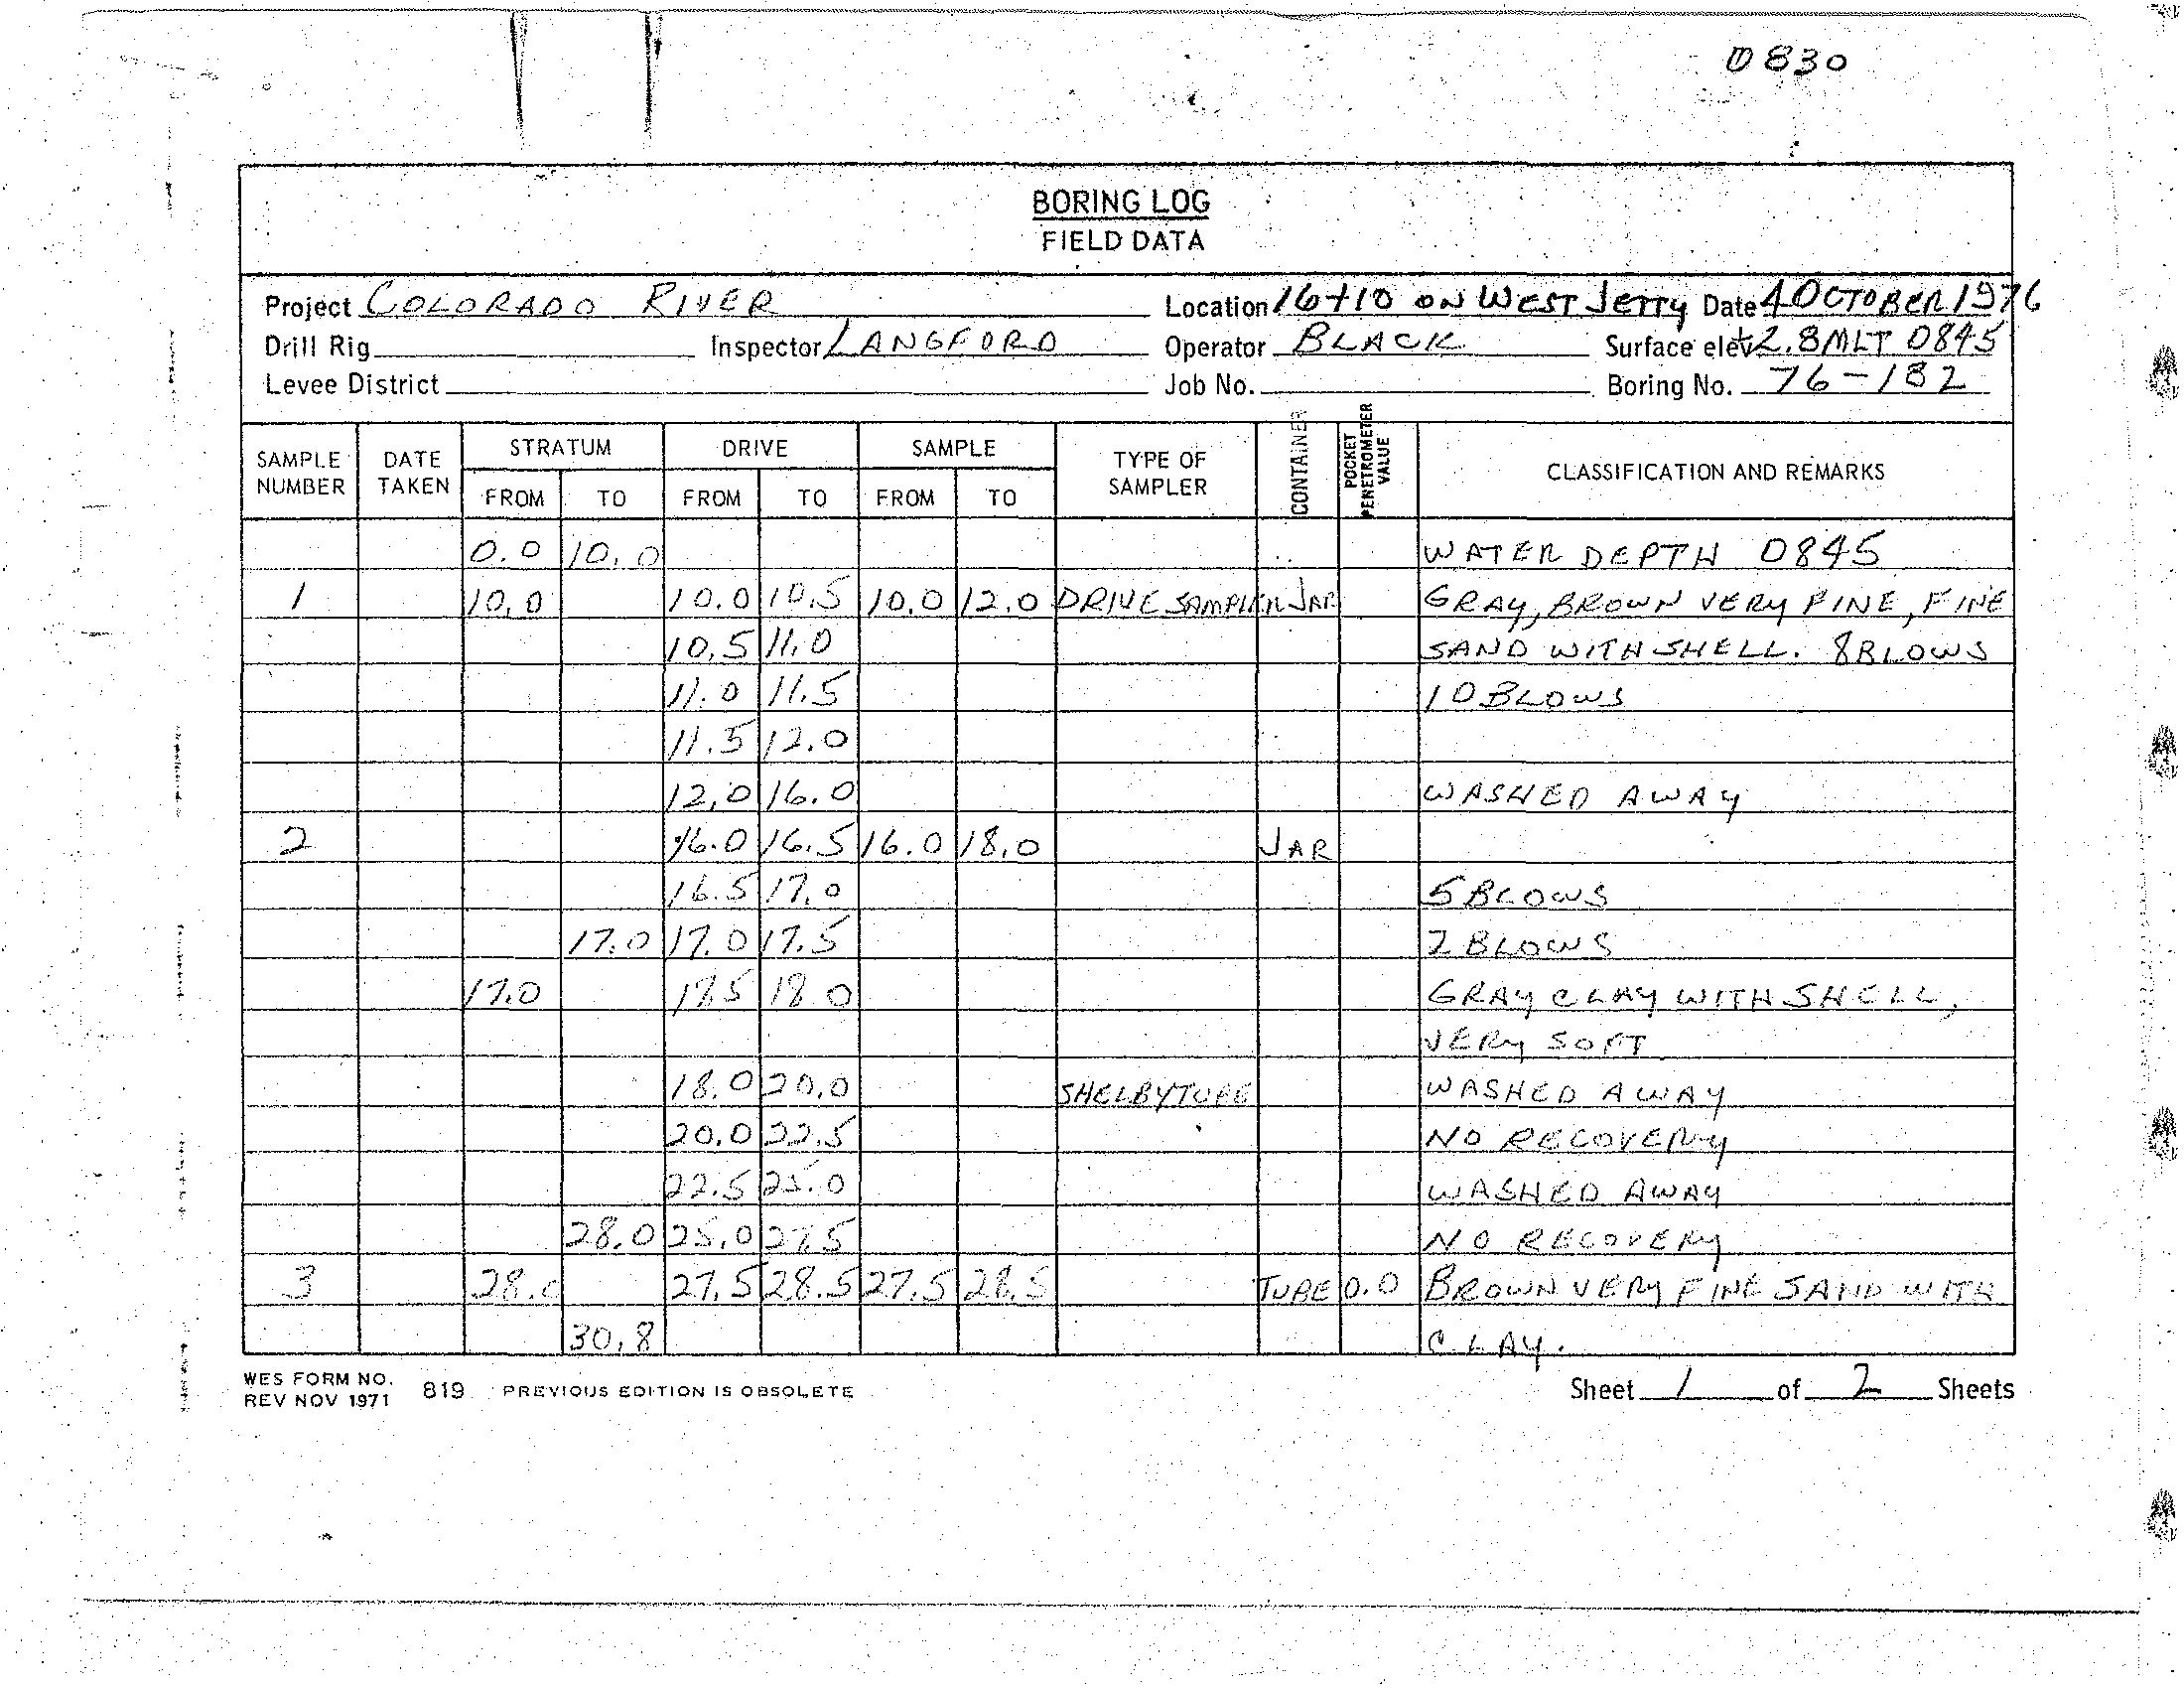 0830
BORING LOG
FIELD DATA
Project COLORADO RIVER Location 16+10 ON WEST JETTY Date 4 OCTOBER 1976
Drill Rig Inspector LANGFORD Operator BLACK Surface elev +2.8 MLT 0845
Levee District Job No. Boring No. 76-182
SAMPLE NUMBER DATE TAKEN STRATUM FROM TO DRIVE FROM TO SAMPLE FROM TO TYPE OF SAMPLER CONTAINER POCKET PENETROMETER VALUE CLASSIFICATION AND REMARKS
0.0 10.0 WATER DEPTH 0845
1 10.0 10.0 10.5 10.0 12.0 DRIVE SAMPLER JAR GRAY, BROWN VERY FINE, FINE
10.5 11.0 SAND WITH SHELL. 8 BLOWS
11.0 11.5 10 BLOWS
11.5 12.0
12.0 16.0 WASHED AWAY
2 16.0 16.5 16.0 18.0 JAR
16.5 17.0 5 BLOWS
17.0 17.0 17.5 2 BLOWS
17.0 17.5 18.0 GRAY CLAY WITH SHELL,
VERY SOFT
18.0 20.0 SHELBYTUBE WASHED AWAY
20.0 22.5 NO RECOVERY
22.5 25.0 WASHED AWAY
28.0 25.0 27.5 NO RECOVERY
3 28.0 27.5 28.5 27.5 28.5 TUBE 0.0 BROWN VERY FINE SAND WITH
30.8 CLAY.
WES FORM NO. 819 PREVIOUS EDITION IS OBSOLETE Sheet 1 of 2 Sheets
REV NOV 1971